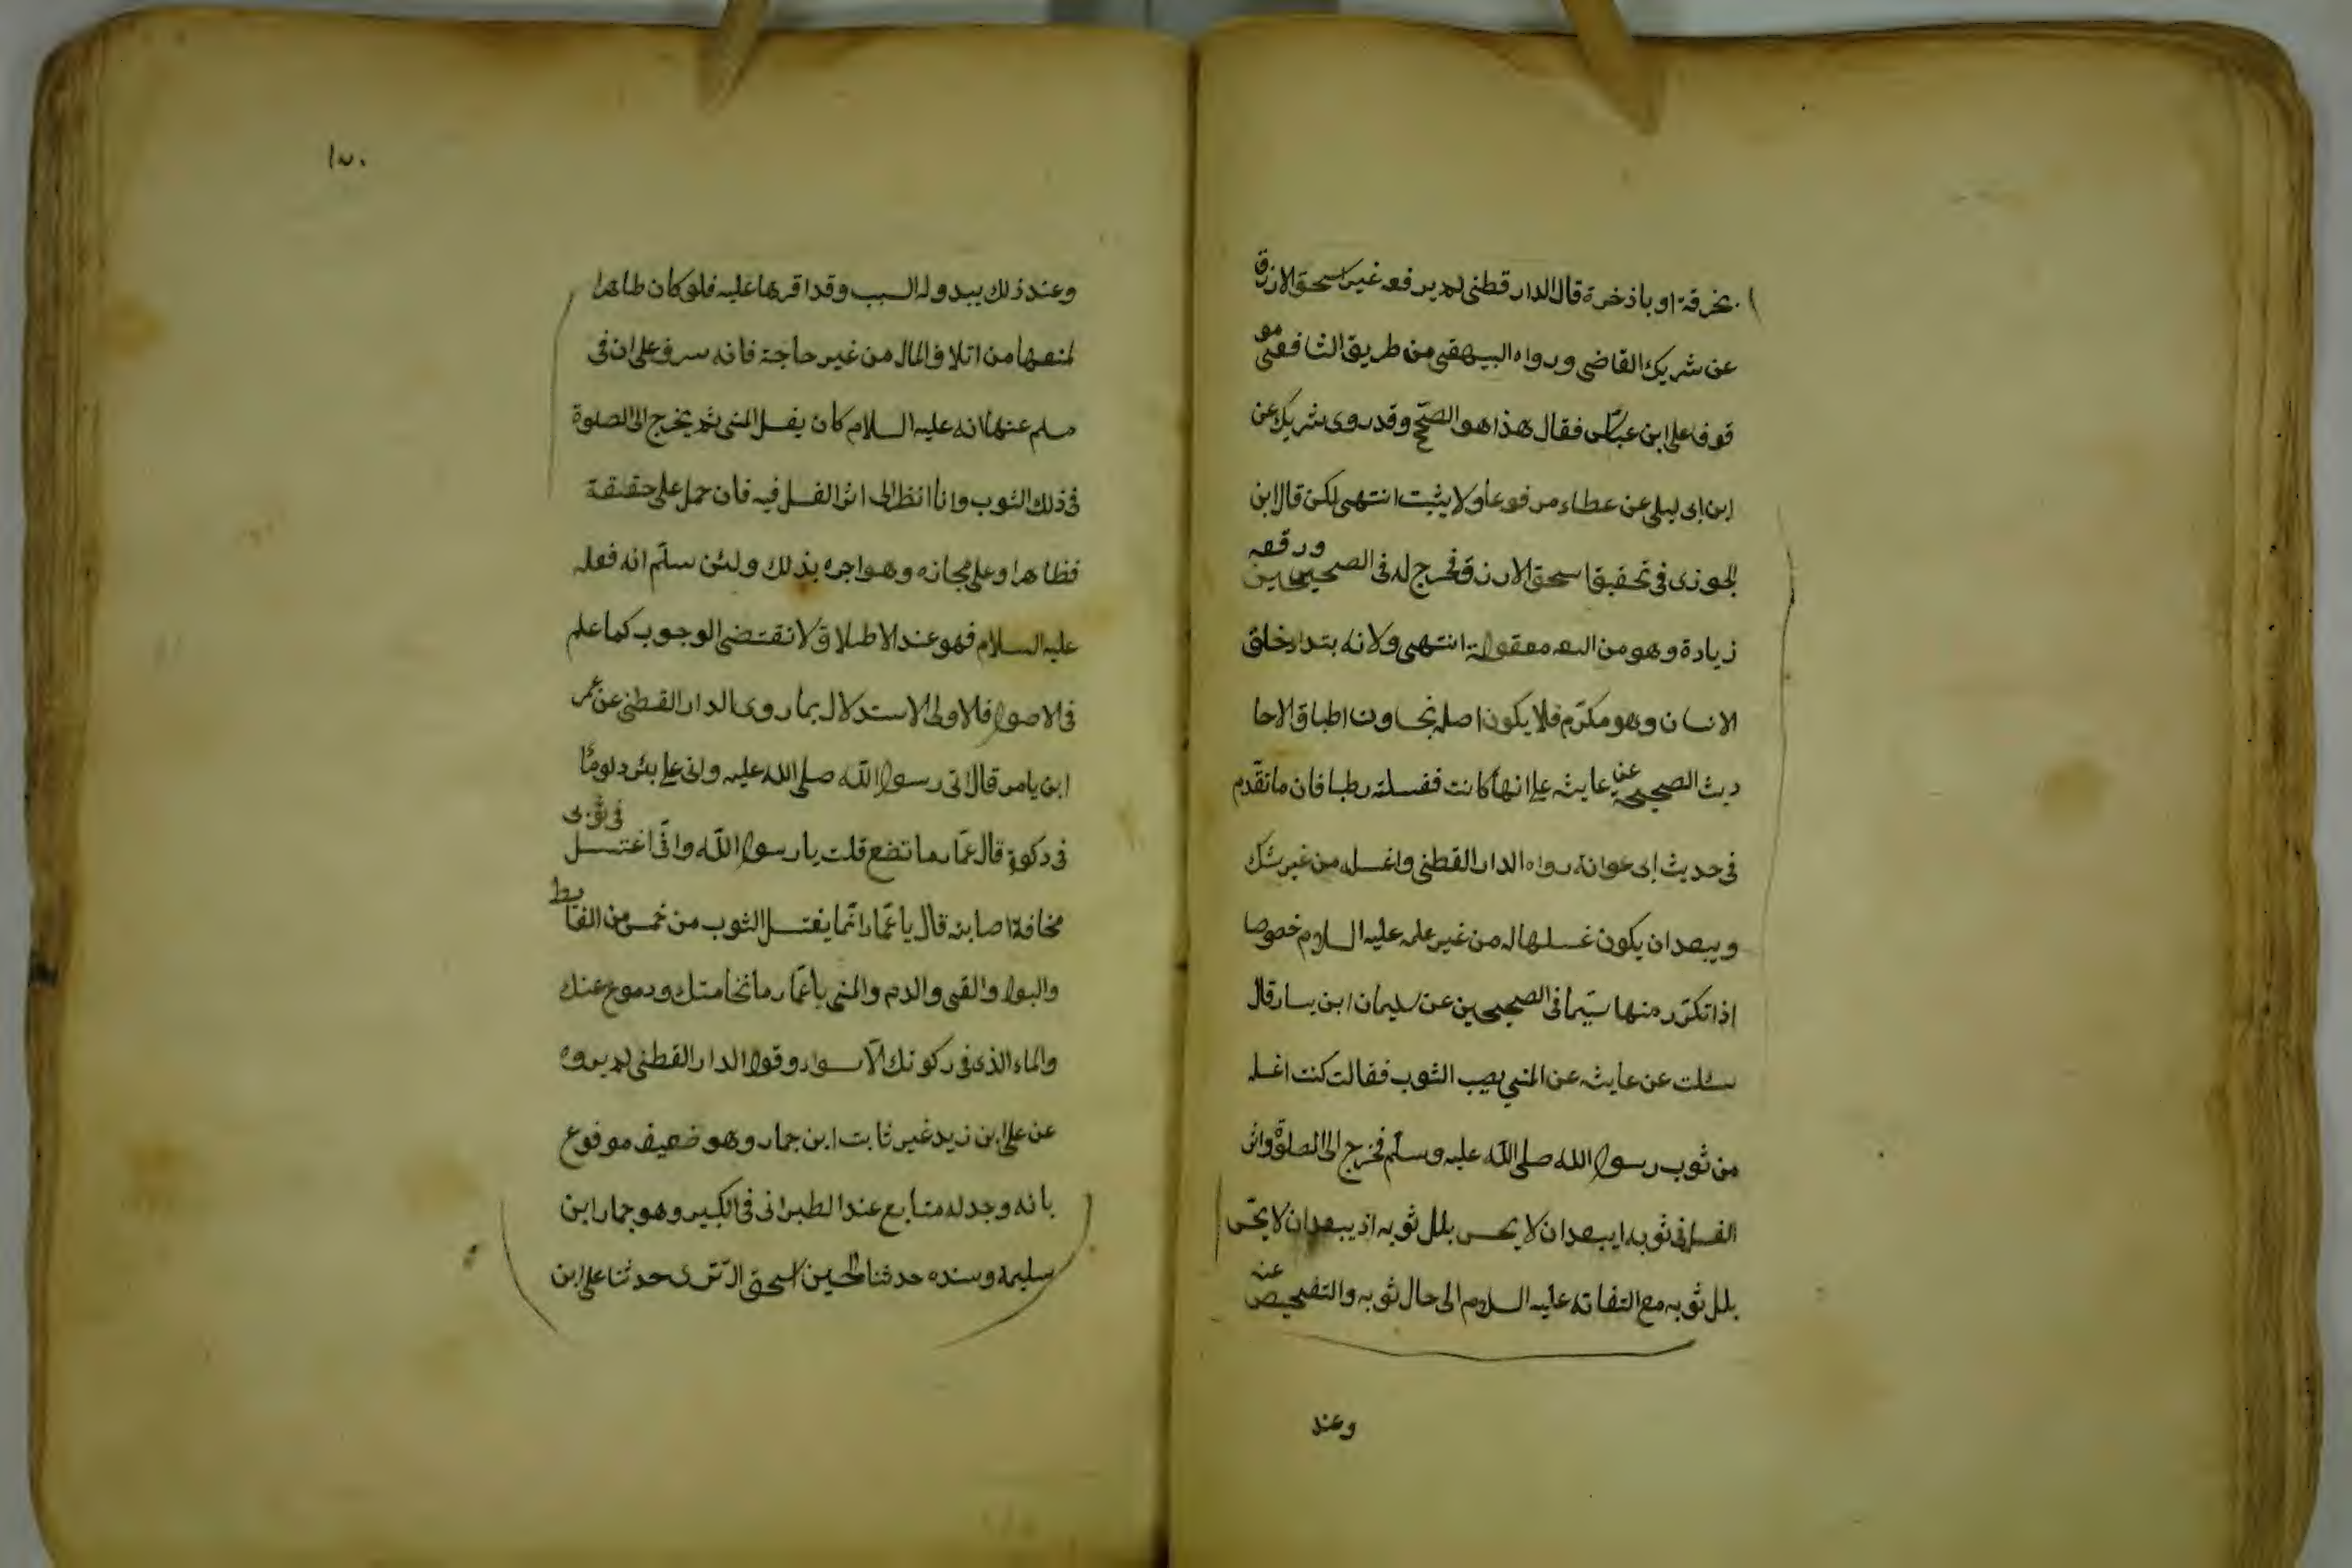 بخرقة او باذخرة قال الدارقطنى لم يرفعه غير اسحق الازرق
عن شريك القاضى ورواه البيهقى من طريق الشافعى مو
قوفا على ابن عباس فقال هذا هو الصحيح وقد روى شريك عن
ابن ابى ليلى عن عطاء مرفوعا ولا يثبت انتهى لكن قال ابن
الجوزى فى تحقيق اسحق الازرق فخرج له فى الصحيحين ورفعه
زيادة وهو من معقولة انتهى ولانه بتداء خلق
الانسان وهو مكرّم فلا يكون اصله نجاو الاحا
ديث الصحيحة عن عايشه على انها كانت فغسلته رطبا فان ما تقدّم
فى حديث ابى عوانة رواه الدار القطنى واغسله من غير شك
ويبعد ان يكون غسلها له من غير علمه عليه السلام خصوصا
اذا تكرّر منها سيّما فى الصحيحين عن سليمان ابن يسار قال
سئلت عن عايشه عن المنى يصيب الثوب فقالت كنت اغسله
من ثوب رسول الله صلى الله عليه وسلّم فخرج الى الصلوة واثر
الغسل فى ثوبه ايبعد ان لا يحس بلل ثوبه اذ يبعد ان لا يحسّ
بلل ثوبه مع التفاته عليه السلام الى حال ثوبه والتفحيص عنه
وعند
١٧٠
وعند ذلك يبدو له السبب وقد اقرها عليه فلو كان طاهرا
لمنعها من اتلاف المال من غير حاجة فانه سرف على ان فى
مسلم عنها انه عليه السلام كان يغسل المنى ثم يخرج الى الصلوة
فى ذلك الثوب وانا انظر الى اثر الغسل فيه فان حمل على حقيقة
فظاهر او على مجازه وهو اجره بذلك ولئن سلّم انه فعله
عليه السلام فهو عند الاطلاق لا نقتضى الوجوب كما علم
فى الاصول فالاولى الاستدلال بما روى الدار القطنى عن عمر
ابن يامر قال اتى رسول الله صلى الله عليه وانى على بئر دلوما
فى دكوة قال عمّار ما تضع قلت يا رسول الله وافّى اغتسل فى ثوبى
مخافة اصابته قال يا عمّار انّما يغتسل الثوب من خمس من الغايط
والبول والقى والدم والمنى يا عمّار ما نخامتك ودموع عنك
والماء الذى فى ركوتك الّا سواء وقول الدار القطنى لم يروه
عن على ابن زيد غير ثابت ابن جمار وهو ضعيف موفوع
بانه وجد له متابع عند الطبرانى فى الكبير وهو جمار ابن
سليمة وسنده حدثنا الحسين اسحق التسرى حدثنا على ابن